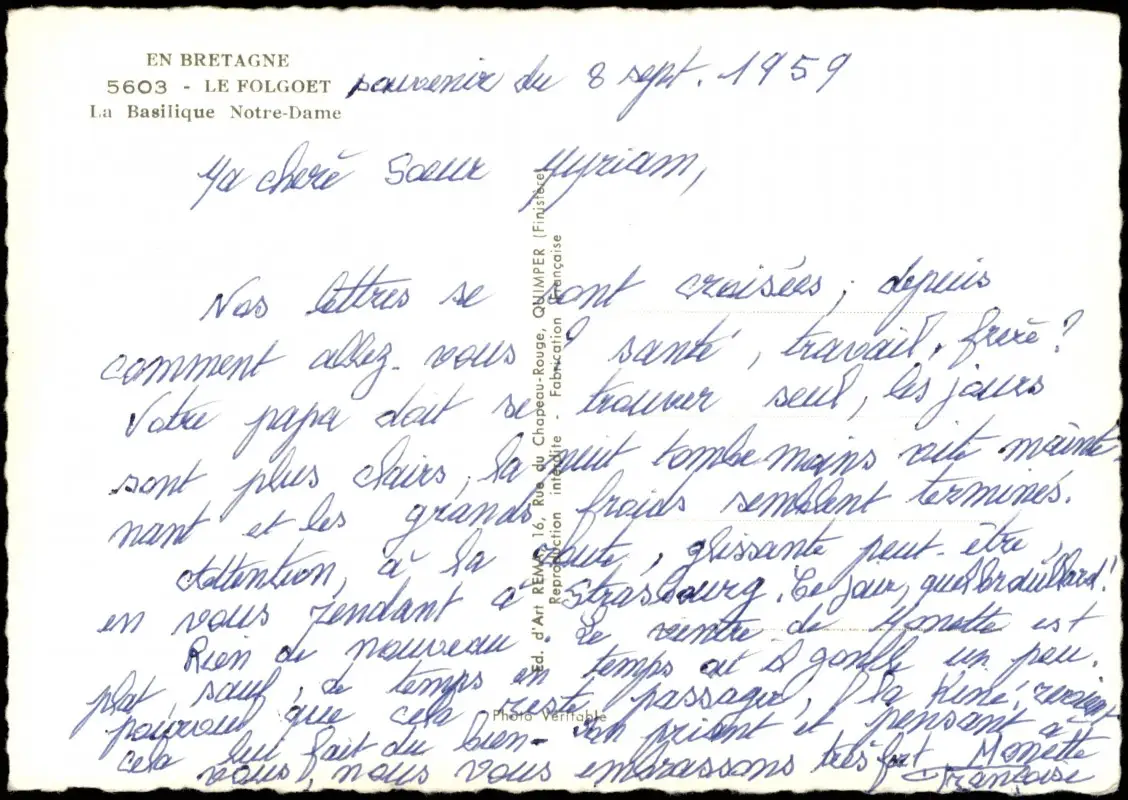 EN BRETAGNE
5603 - LE FOLGOET
La Basilique Notre-Dame
souvenir du 8 sept. 1959
Ma chère Soeur Myriam,
Nos lettres se sont croisées, depuis
comment allez-vous ? santé, travail, frère ?
Votre papa doit se trouver seul, les jours
sont plus clairs, la nuit tombe moins vite mainte-
nant et les grands froids semblent terminés.
Attention, à la route, glissante peut-être,
en vous rendant à Strasbourg. Ce jour, quel brouillard !
Rien de nouveau. Le ventre de Monette est
plat, sauf, de temps en temps où il gonfle un peu.
pourvu que cela reste passager, la Kiné,
cela lui fait du bien - En priant et pensant à
vous, nous vous embrassons très fort Monette
Françoise
Ed. d'Art REMA, 16, Rue du Chapeau-Rouge, QUIMPER (Finistère)
Reproduction interdite - Fabrication Française
Photo Véritable